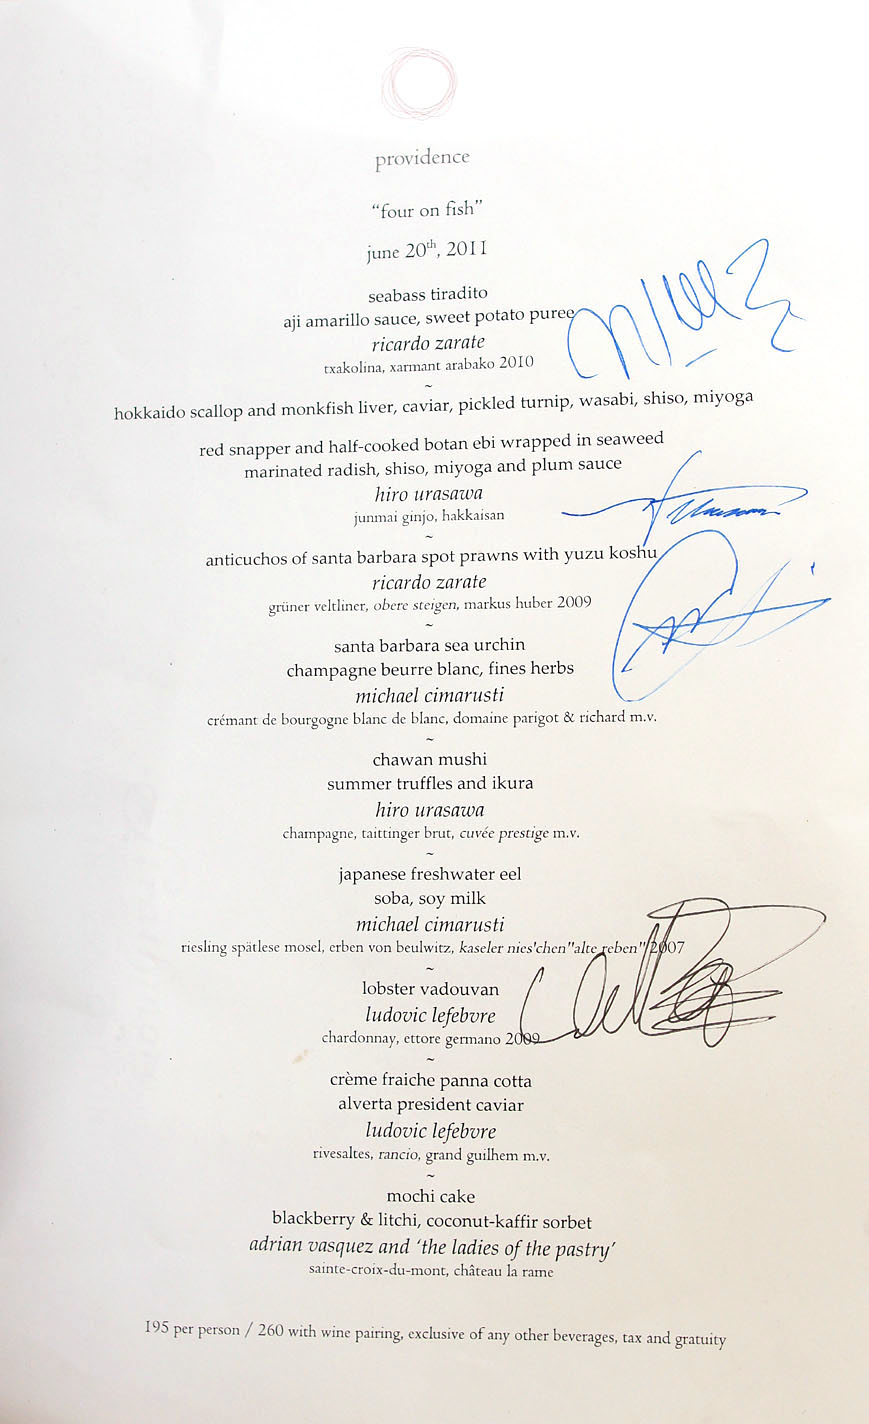 providence
“four on fish”
june 20th, 2011
seabass tiradito
aji amarillo sauce, sweet potato puree
ricardo zarate
txakolina, xarmant arabako 2010
~
hokkaido scallop and monkfish liver, caviar, pickled turnip, wasabi, shiso, miyoga
red snapper and half-cooked botan ebi wrapped in seaweed
marinated radish, shiso, miyoga and plum sauce
hiro urasawa
junmai ginjo, hakkaisan
~
anticuchos of santa barbara spot prawns with yuzu koshu
ricardo zarate
grüner veltliner, obere steigen, markus huber 2009
~
santa barbara sea urchin
champagne beurre blanc, fines herbs
michael cimarusti
crémant de bourgogne blanc de blanc, domaine parigot & richard m.v.
~
chawan mushi
summer truffles and ikura
hiro urasawa
champagne, taittinger brut, cuvée prestige m.v.
~
japanese freshwater eel
soba, soy milk
michael cimarusti
riesling spätlese mosel, erben von beulwitz, kaseler nies'chen"alte reben" 2007
~
lobster vadouvan
ludovic lefebvre
chardonnay, ettore germano 2009
~
crème fraiche panna cotta
alverta president caviar
ludovic lefebvre
rivesaltes, rancio, grand guilhem m.v.
~
mochi cake
blackberry & litchi, coconut-kaffir sorbet
adrian vasquez and ‘the ladies of the pastry’
sainte-croix-du-mont, château la rame
195 per person / 260 with wine pairing, exclusive of any other beverages, tax and gratuity